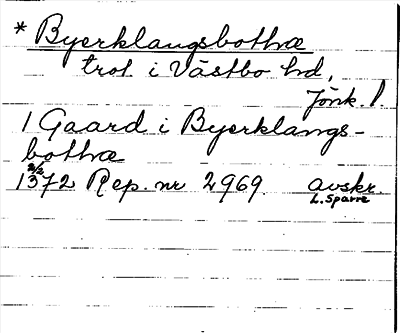 * Byerklangsbothræ
trol. i Västbo hd,
Jönk. l.
1 Gaard i Byerklangs-
bothræ
2/2
1372 Rep. nr 2969 avskr.
L. Sparre